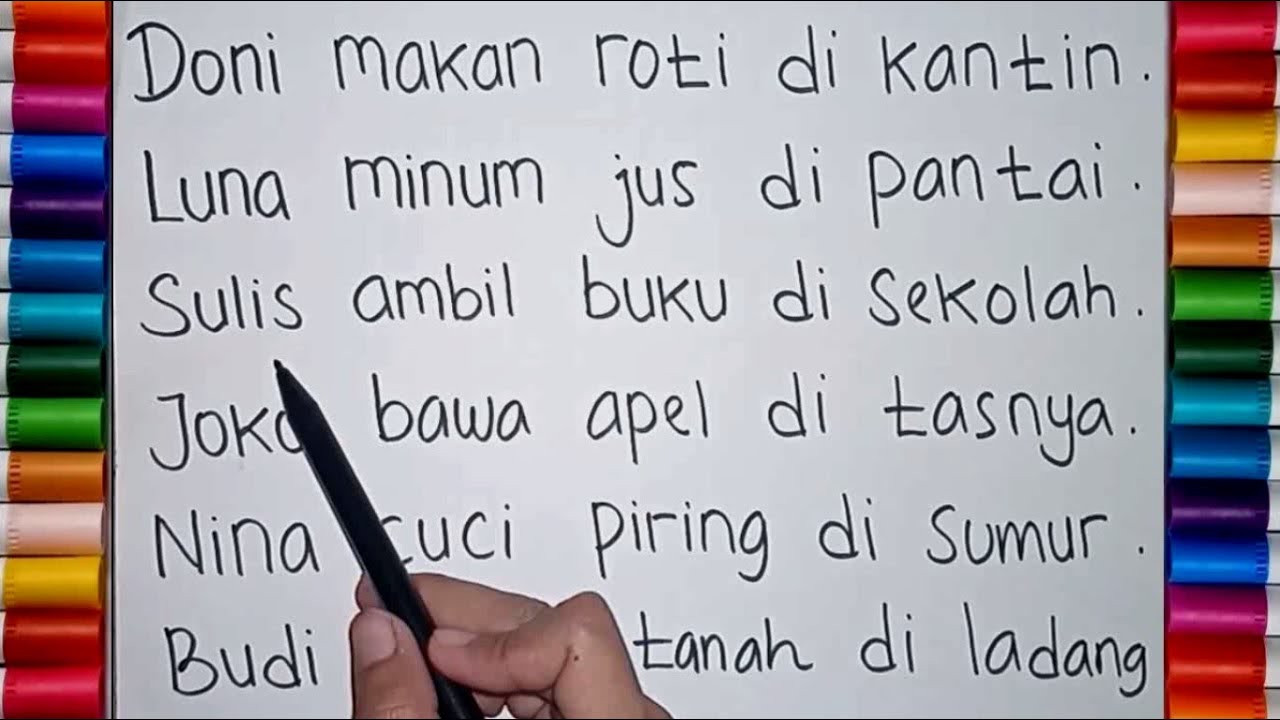 Doni makan roti di kantin.
Luna minum jus di pantai.
Sulis ambil buku di sekolah.
Joko bawa apel di tasnya.
Nina cuci piring di sumur.
Budi tanah di ladang